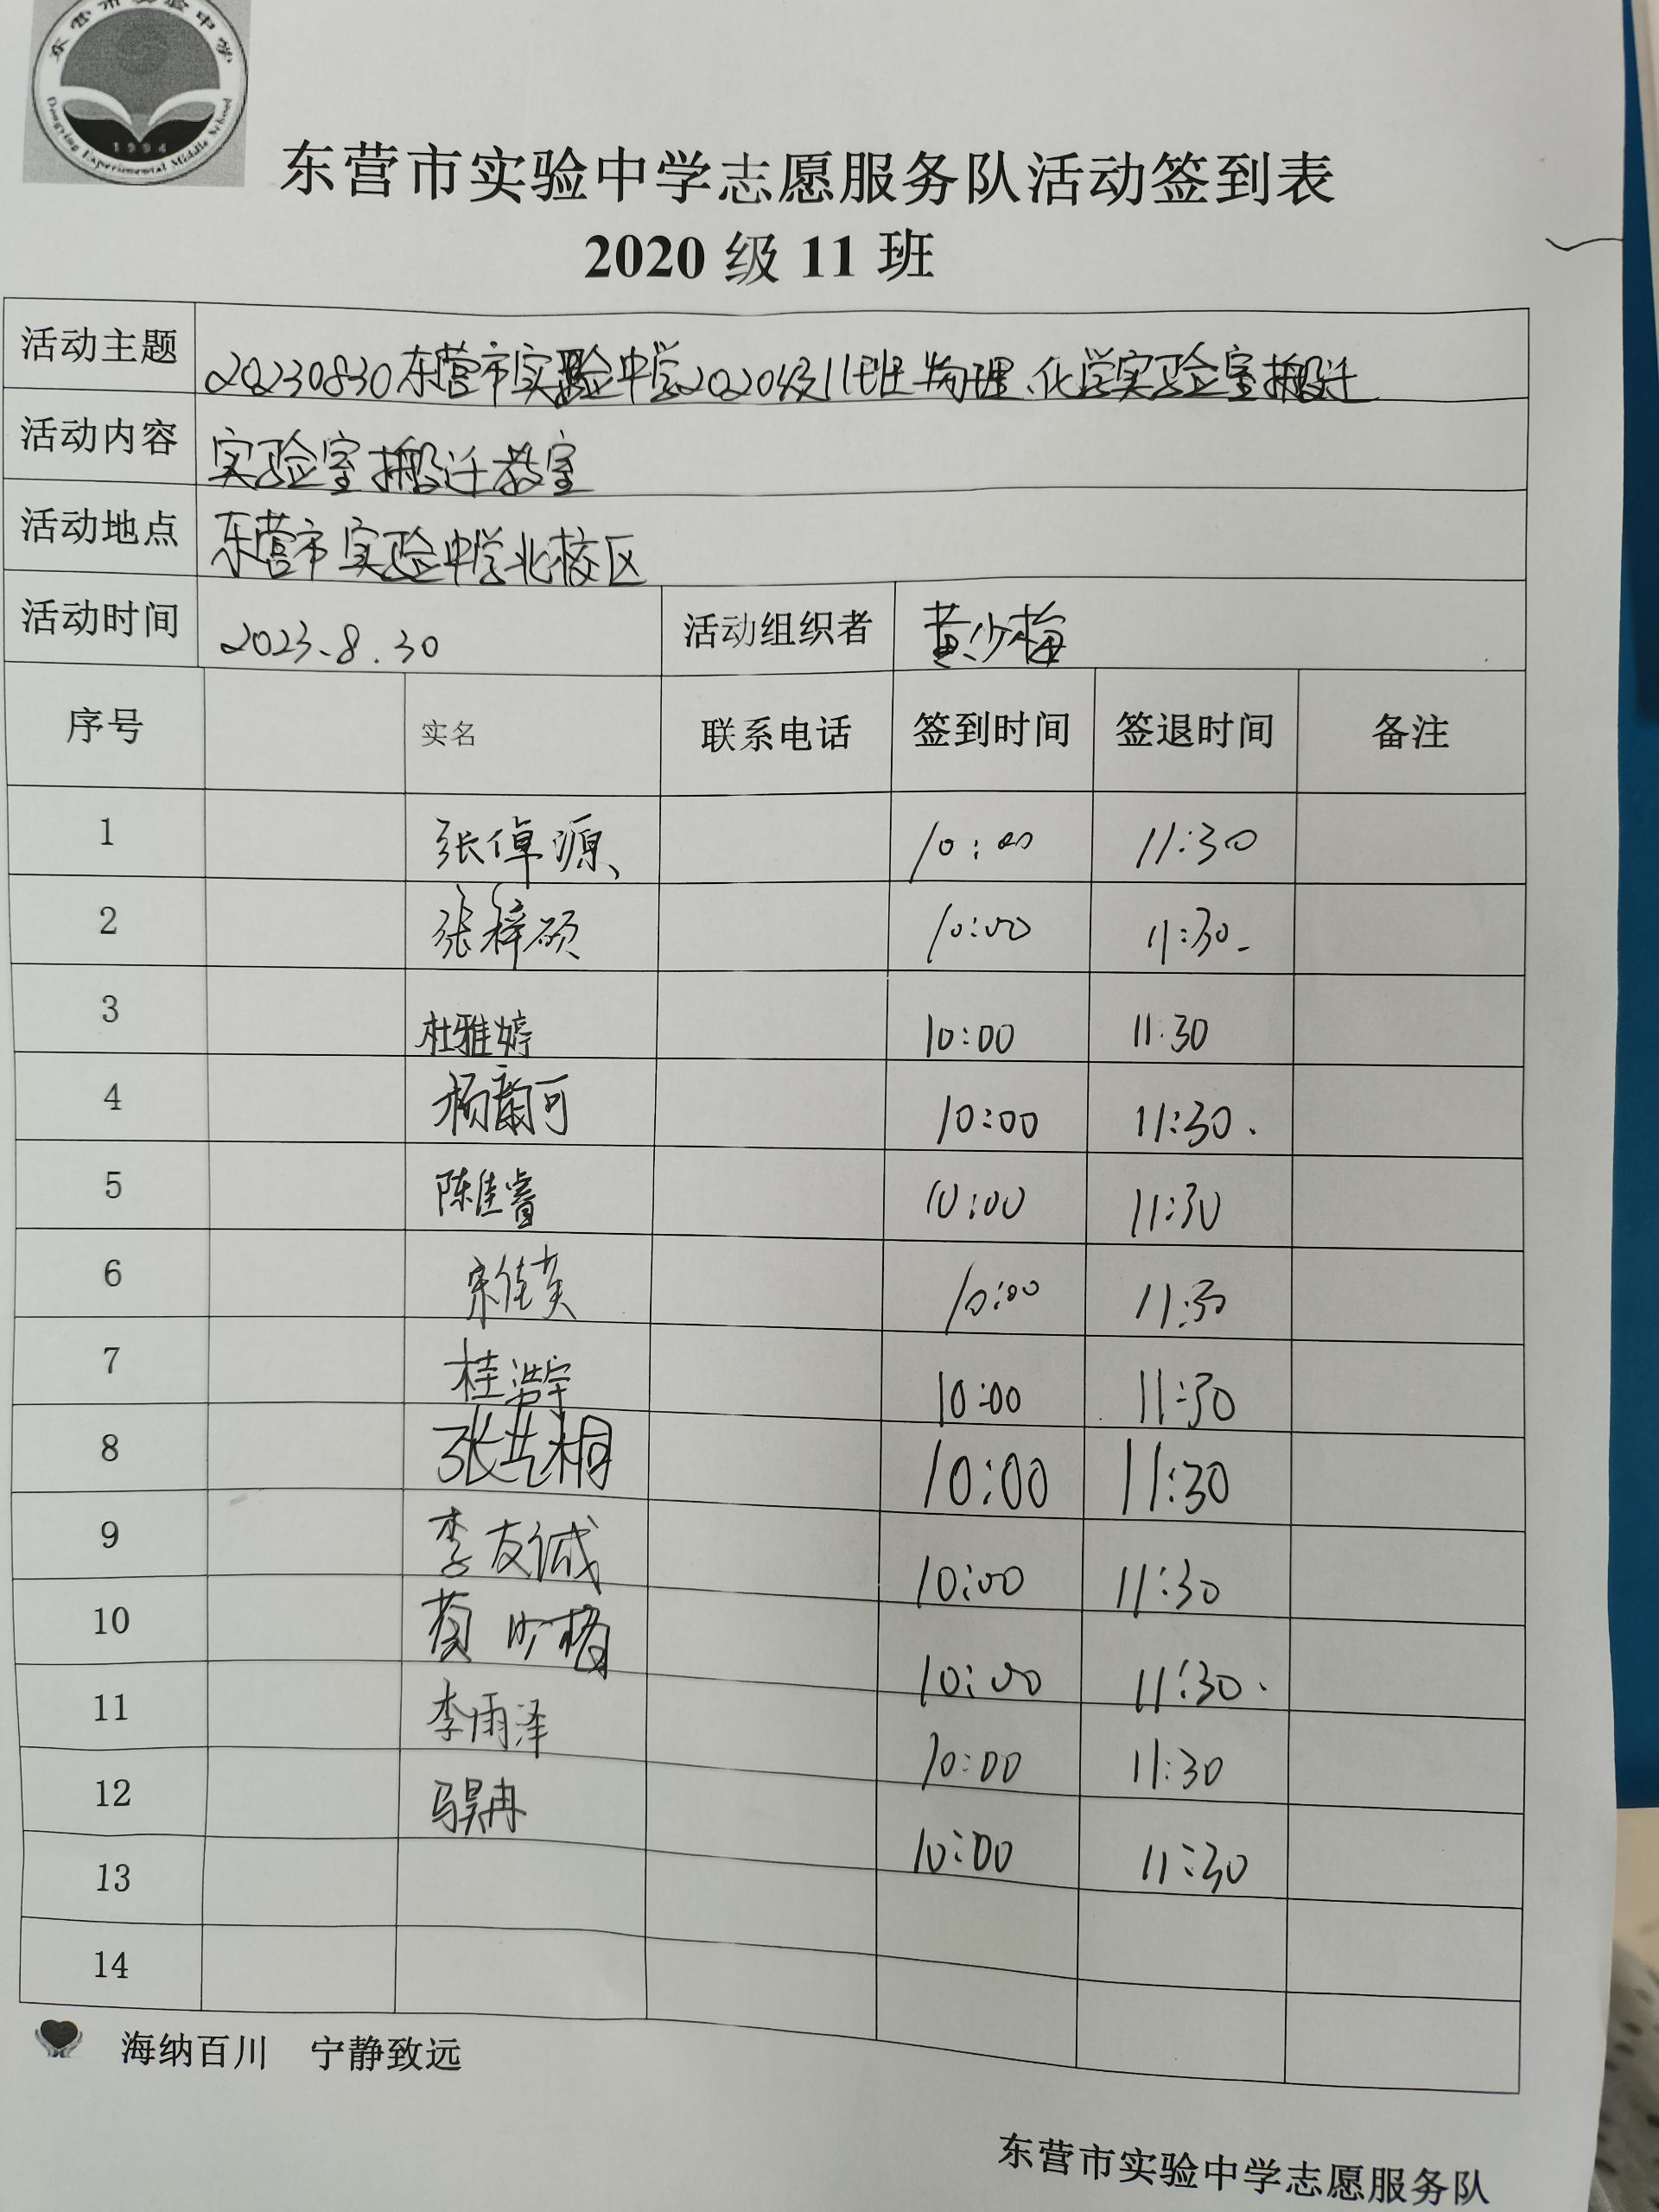 东营市实验中学
Dongying Experimental Middle School
1994
东营市实验中学志愿服务队活动签到表
2020 级 11 班
活动主题 20230830东营市实验中学2020级11班物理、化学实验室搬迁
活动内容 实验室搬迁教室
活动地点 东营市实验中学北校区
活动时间 2023.8.30 活动组织者 黄少梅
序号 实名 联系电话 签到时间 签退时间 备注
1 张倬源 10:00 11:30
2 张梓硕 10:00 11:30
3 杜雅婷 10:00 11:30
4 杨可 10:00 11:30
5 陈佳睿 10:00 11:30
6 宋佳 10:00 11:30
7 桂浩宇 10:00 11:30
8 张艺桐 10:00 11:30
9 李友诚 10:00 11:30
10 10:00 11:30
11 李雨泽 10:00 11:30
12 马昊冉 10:00 11:30
13
14
海纳百川 宁静致远
东营市实验中学志愿服务队